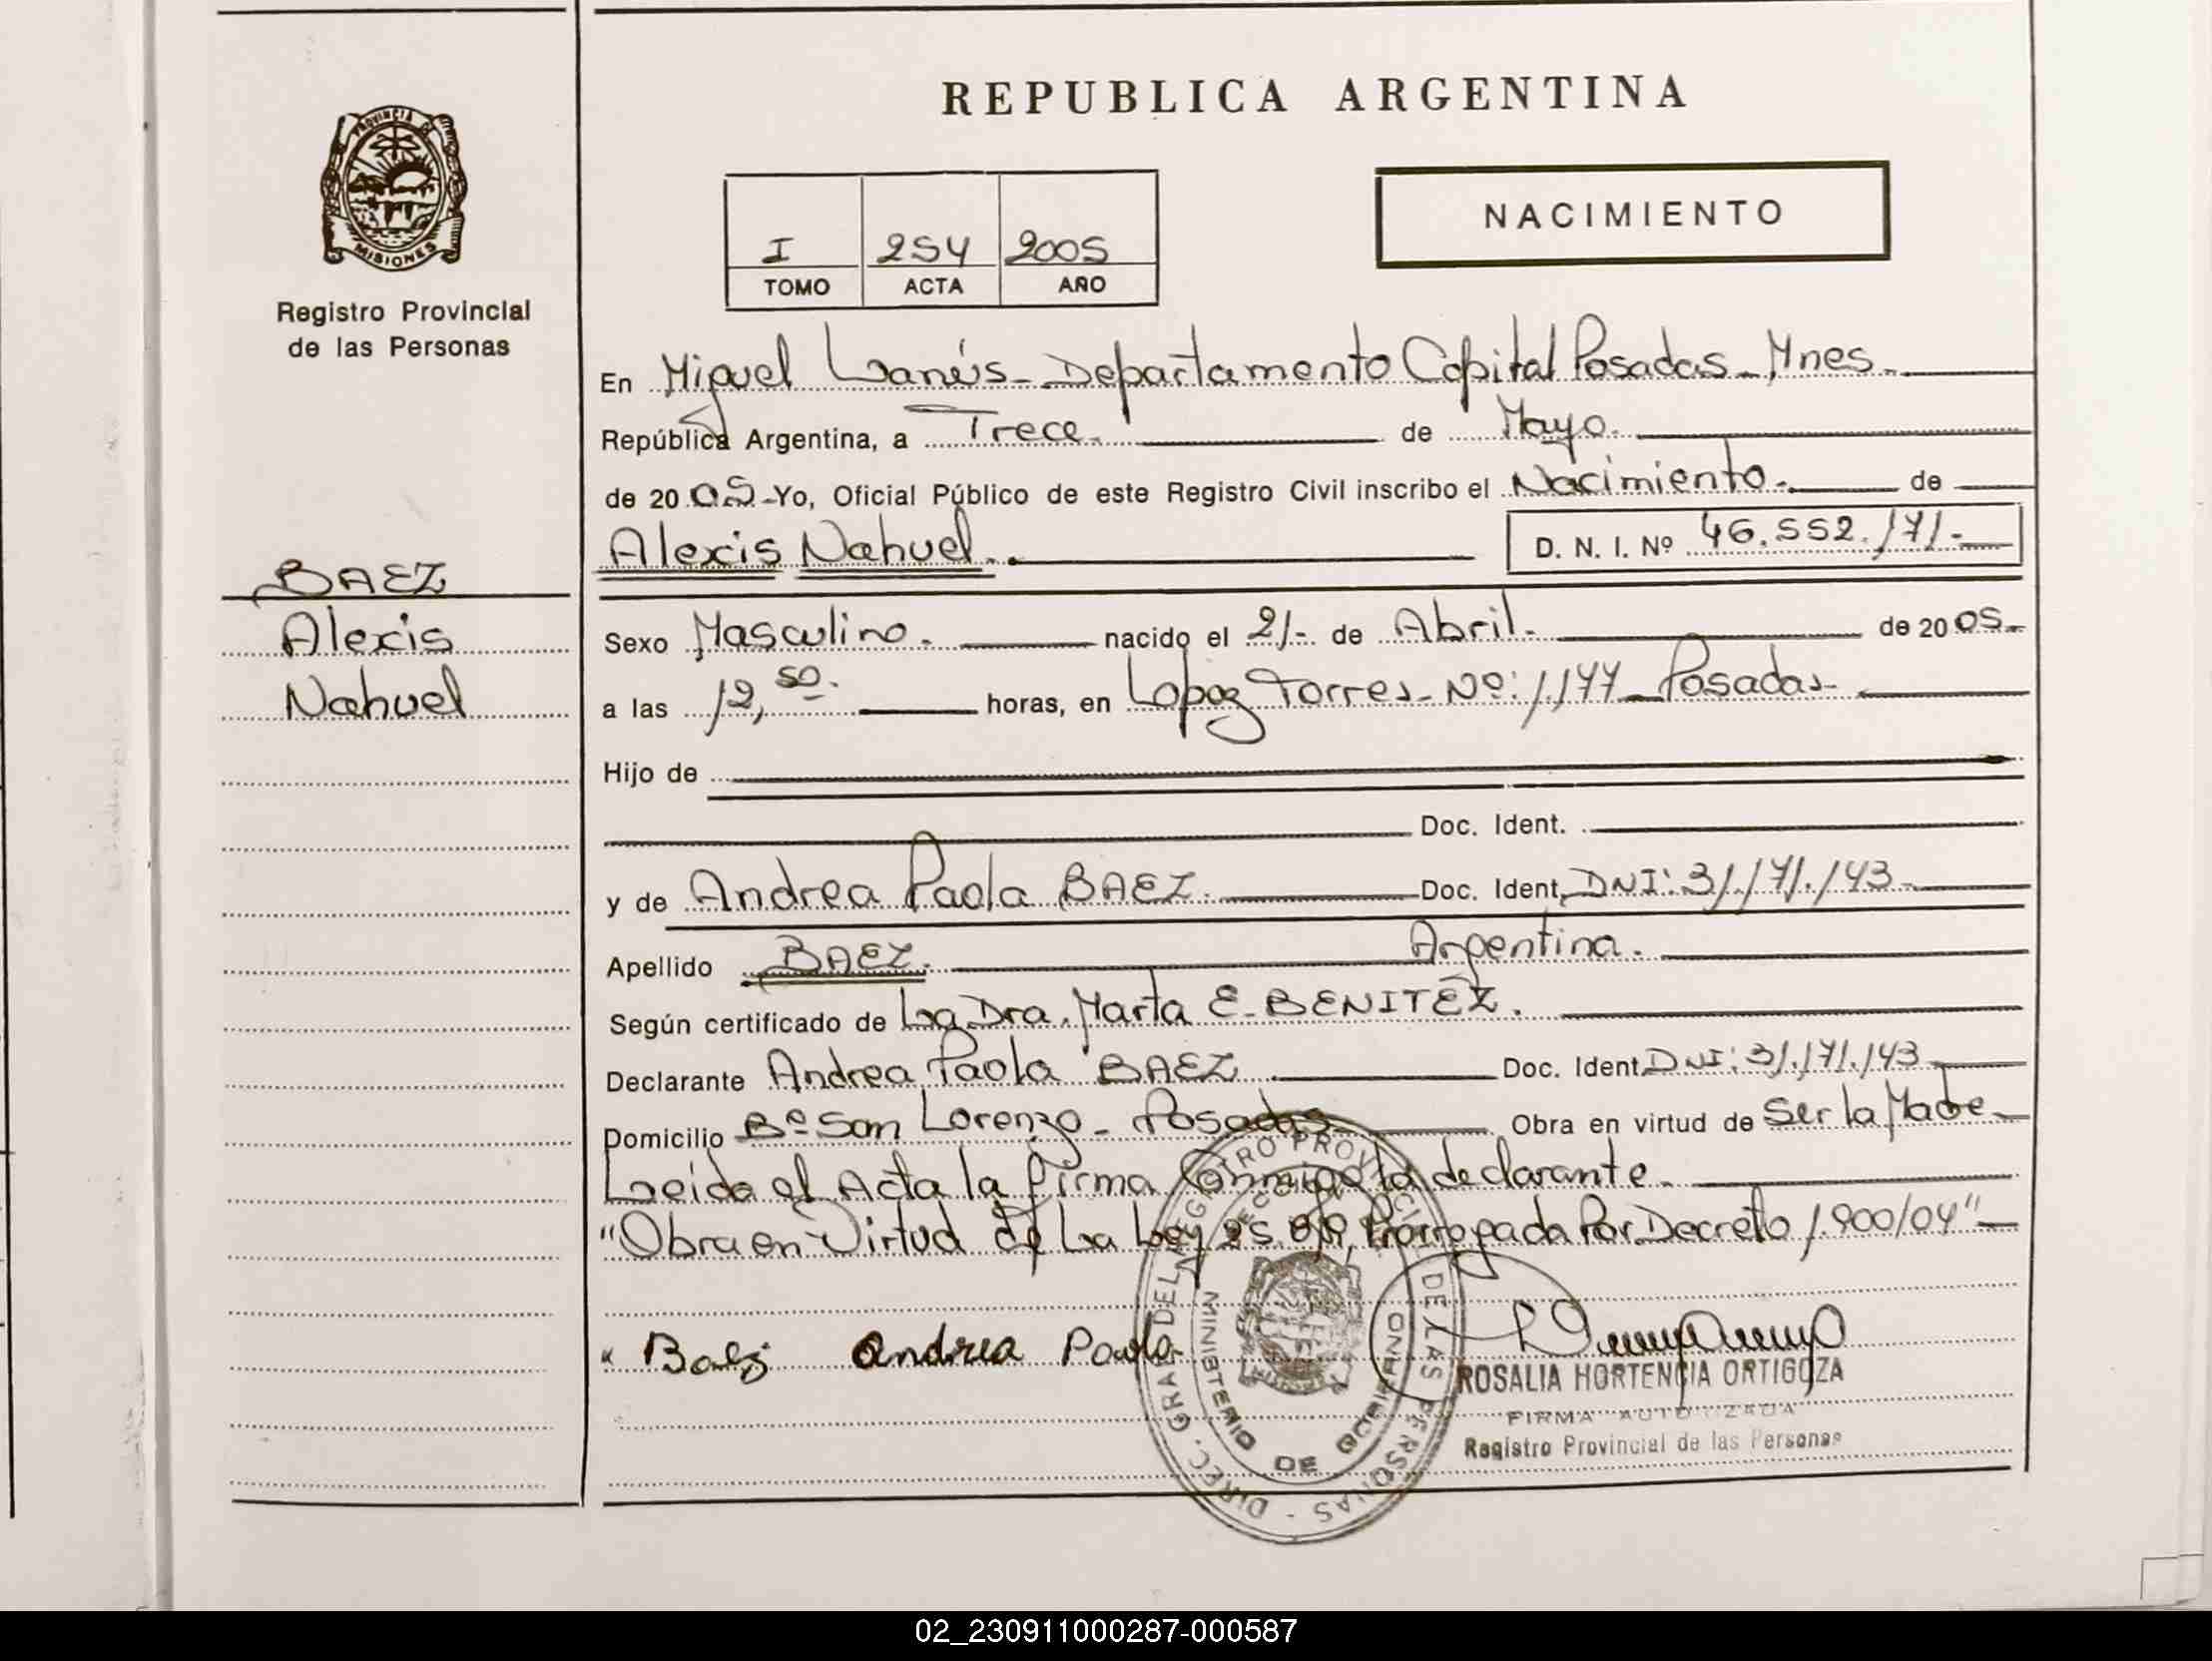 REPUBLICA ARGENTINA
PROVINCIA DE
MISIONES
Registro Provincial
de las Personas
NACIMIENTO
I 254 2005
TOMO ACTA AÑO
En Miguel Lanús - Departamento Capital Posadas - Mnes.
República Argentina, a Trece. de Mayo.
de 20 05 - Yo, Oficial Público de este Registro Civil inscribo el Nacimiento. de
Alexis Nahuel. D. N. I. Nº 46.552.171.-
BAEZ
Alexis
Nahuel
Sexo Masculino. nacido el 21- de Abril. de 20 05.
a las 12,50. horas, en Lopez Torres - Nº: 1.177 - Posadas -
Hijo de
Doc. Ident.
y de Andrea Paola BAEZ. Doc. Ident. DNI: 31.171.143
Apellido BAEZ. Argentina.
Según certificado de La Dra. Marta E. BENITEZ.
Declarante Andrea Paola BAEZ Doc. Ident. DNI: 31.171.143
Domicilio Bº San Lorenzo - Posadas Obra en virtud de Ser la Madre
Leida el Acta la firma Conmigo la declarante.
"Obra en Virtud de La Ley 25. Prorrogada Por Decreto 1.900/04"
Baez Andrea Paola
ROSALIA HORTENCIA ORTIGOZA
FIRMA AUTORIZADA
Registro Provincial de las Personas
DIREC. GRAL DEL REGISTRO PROVINCIAL DE LAS PERSONAS -
MINISTERIO DE GOBIERNO
02_230911000287-000587